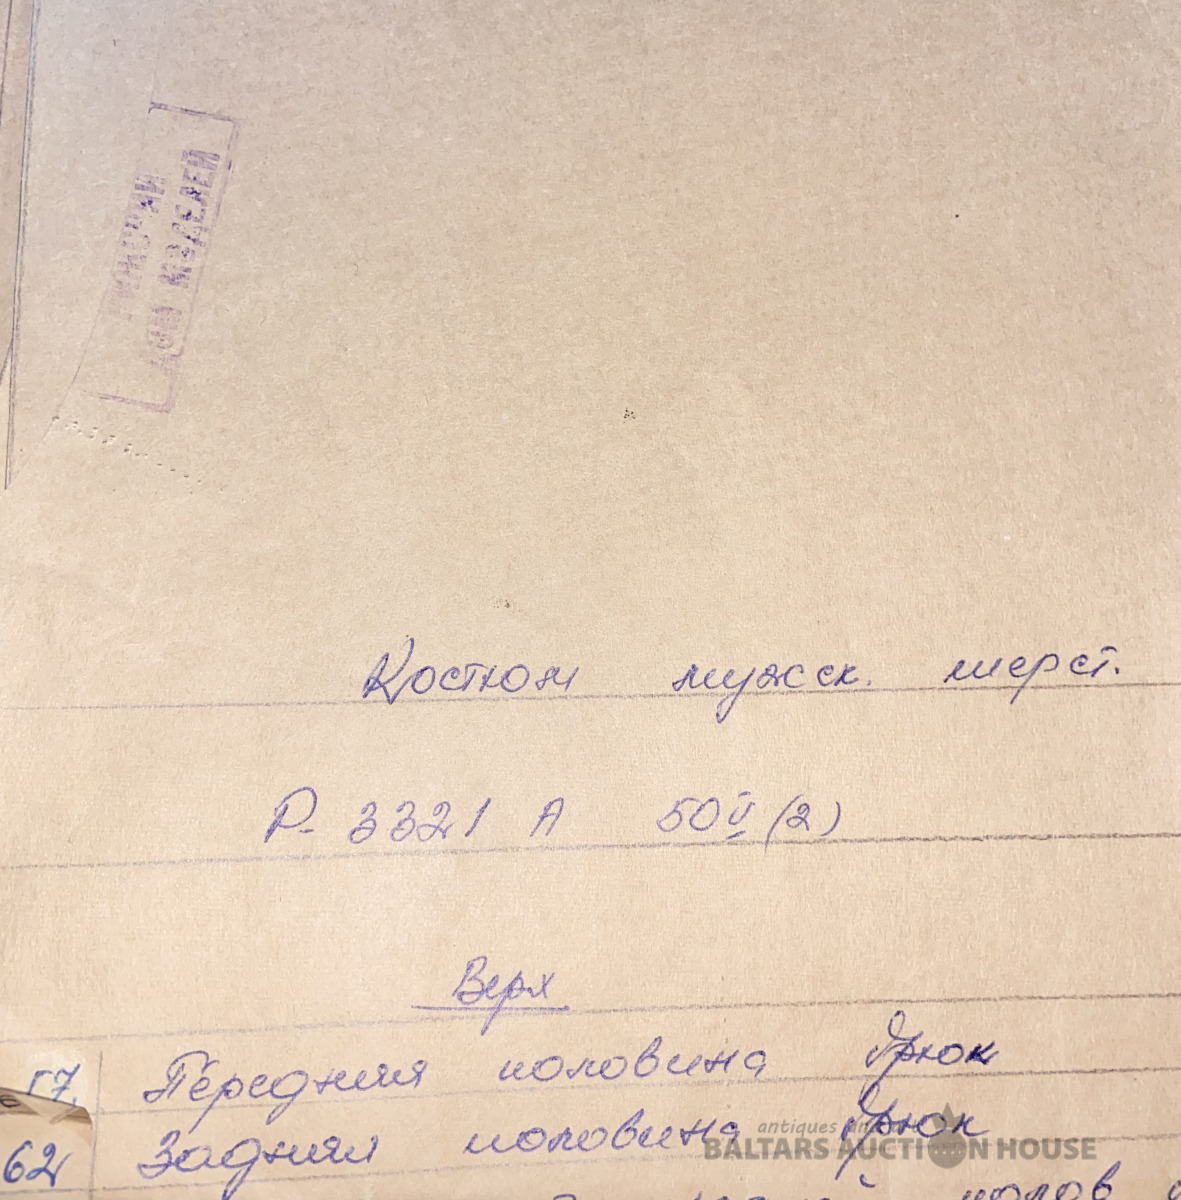 РИЖСКИЙ
ДОМ МОДЕЛЕЙ
Костюм мужсск. шерст.
Р- 3321 А 50 V (2)
Верх
57. Передняя половина брюк
62 Задняя половина брюк
полов
antiques and
BALTARS AUCTION HOUSE